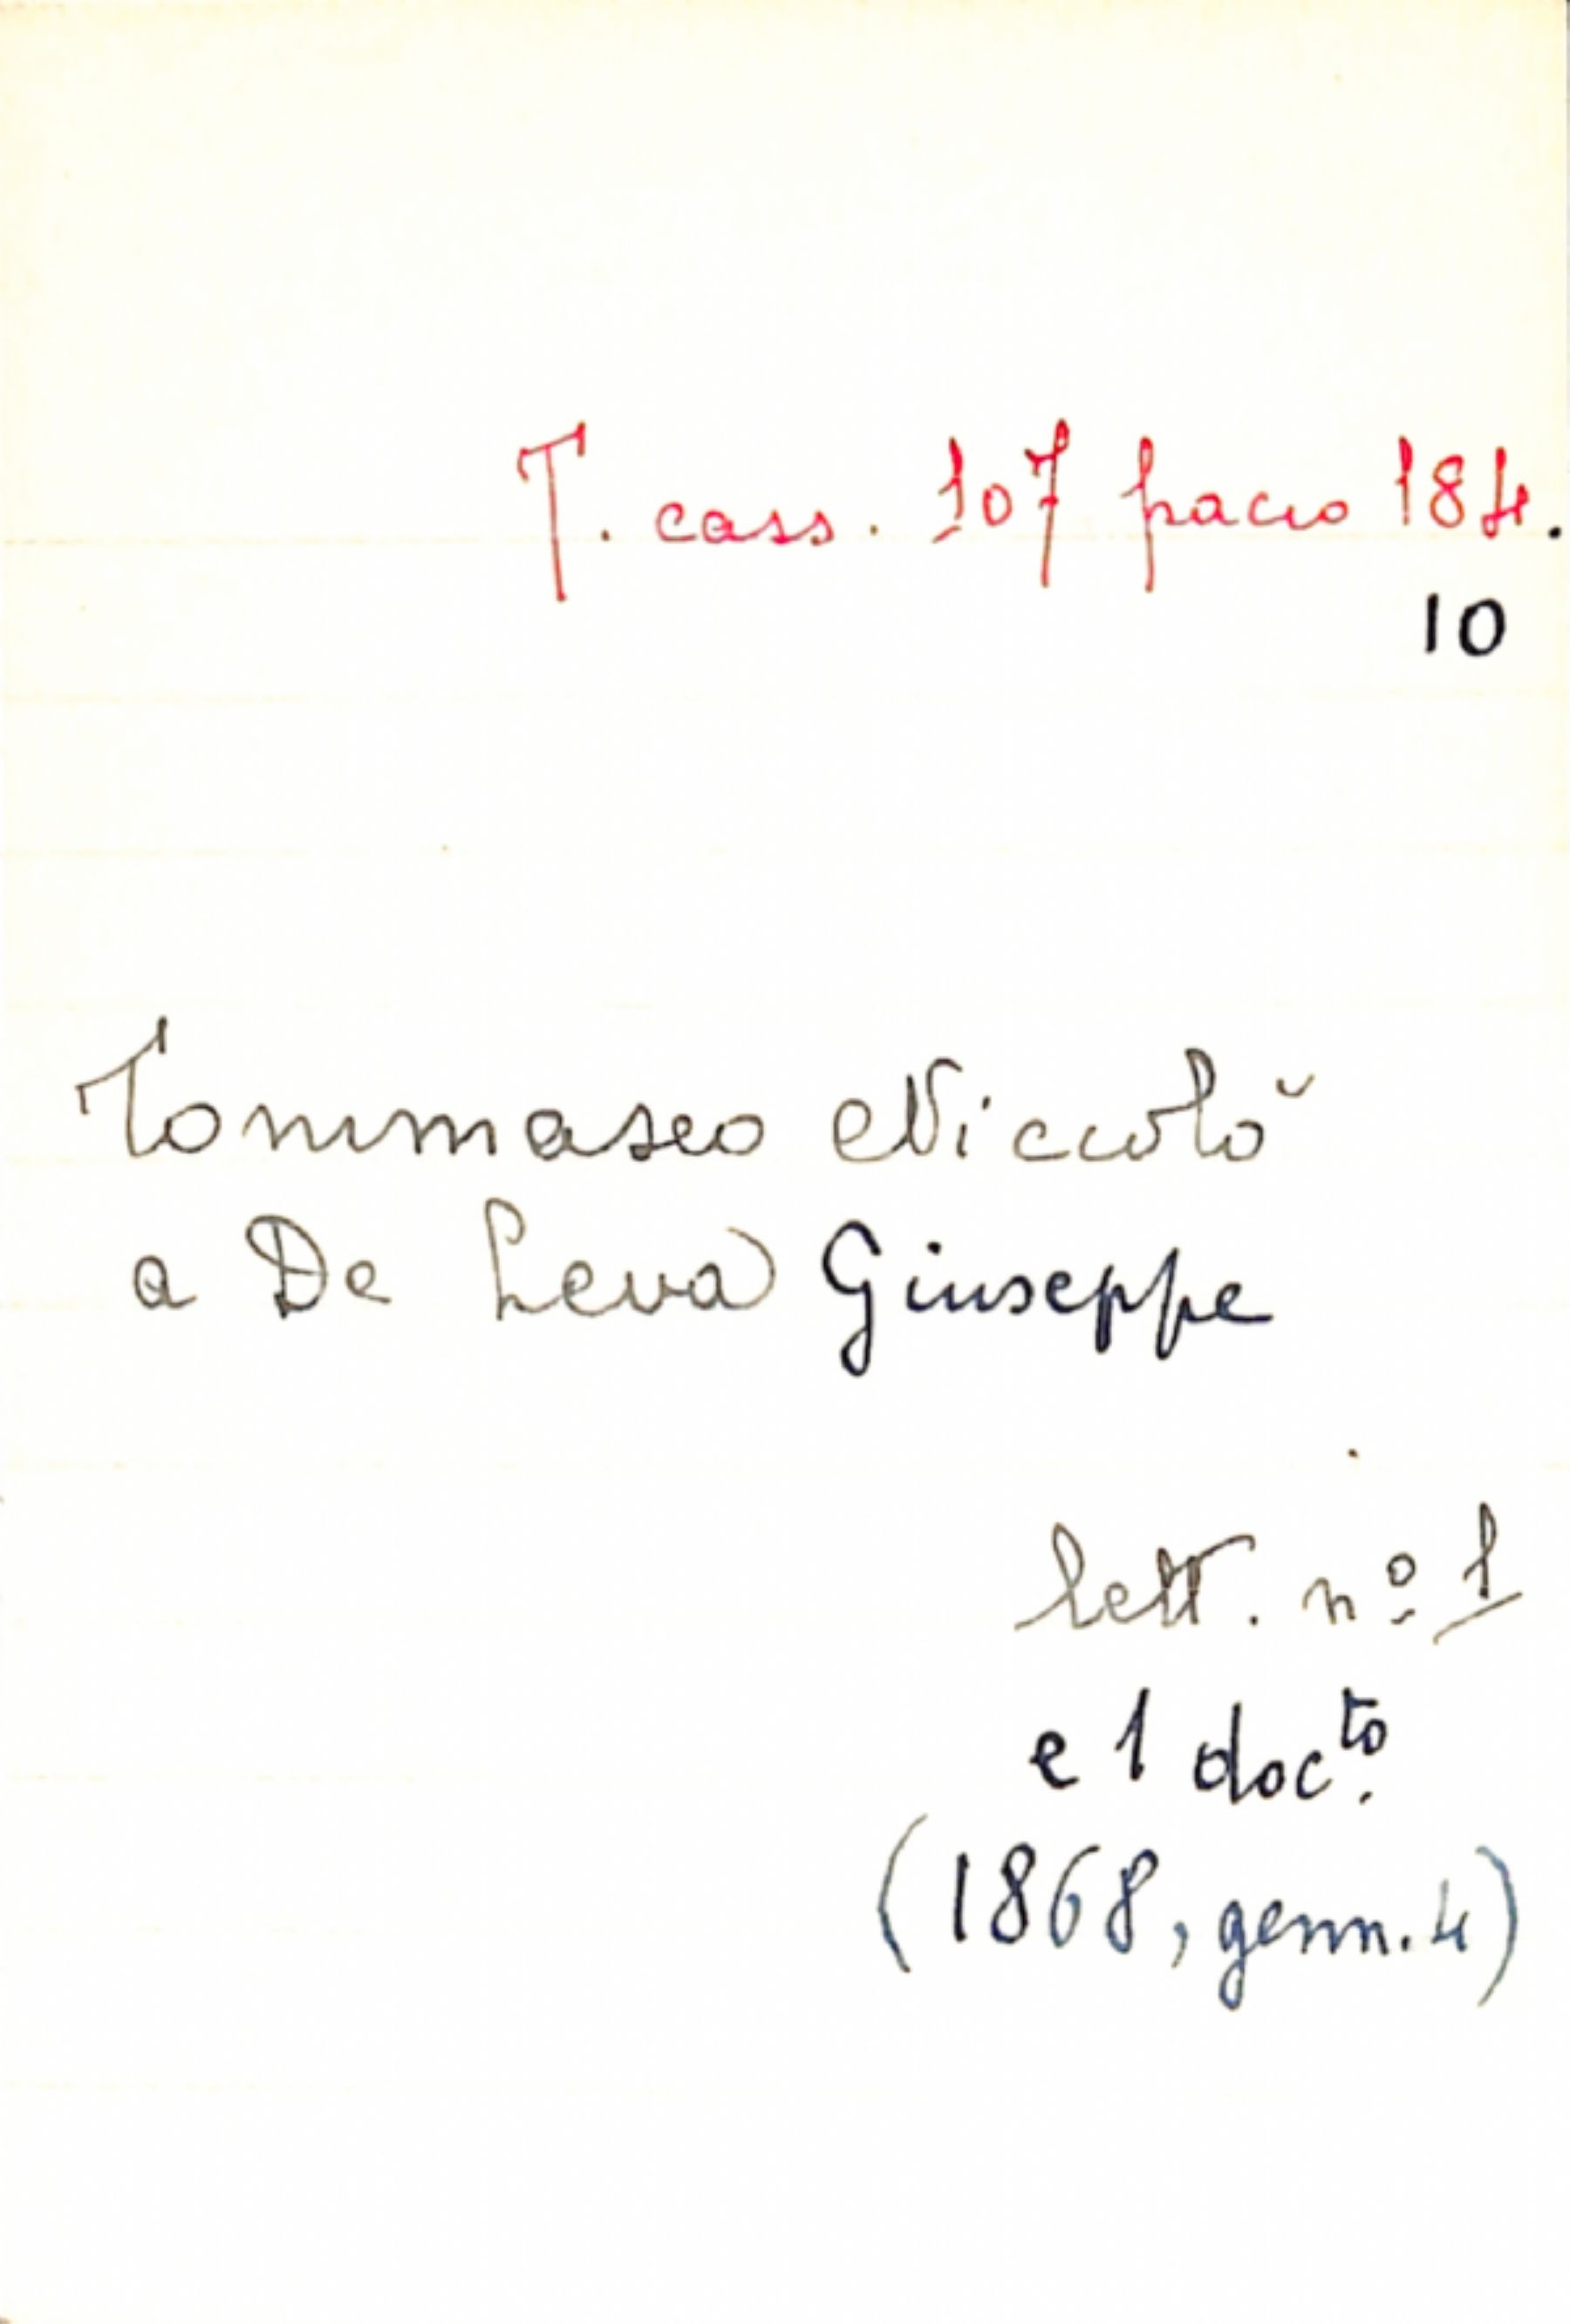 T. cass. 107 pacco 184.
10
Tommaseo Niccolò
a De Leva Giuseppe
lett. nº 1
e 1 docto.
(1868, genn. 4)